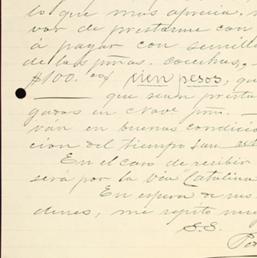 lo que mas aprecia.
var de prestarme con
á pagar con semill
de las piñas.
$100.00/ cien pesos, qu
que sean presta
gadas en clave
van en buenas condicio
cion del tiempo
En el caso de recibir
será por la via "Catalina
En espera de sus
denes, me repito muy
S.S.